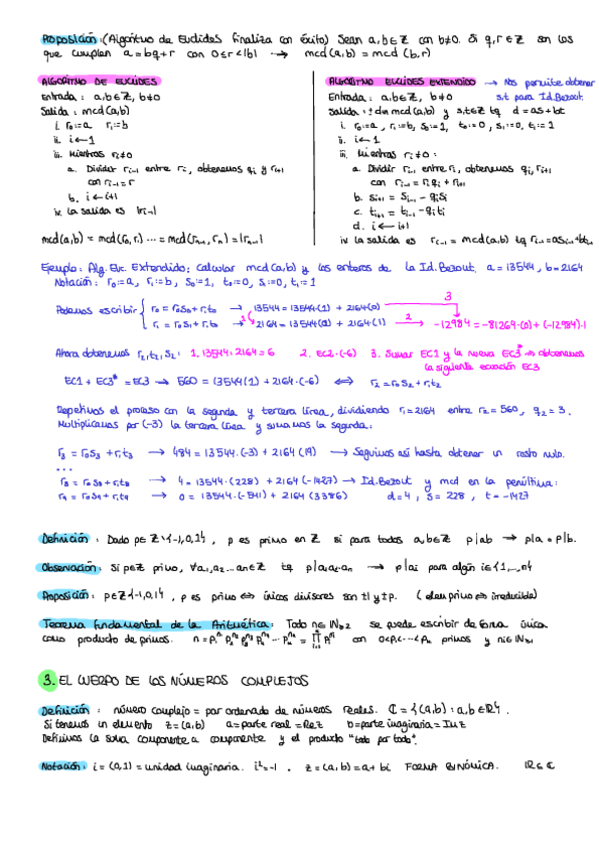 Proposición: (Algoritmo de Euclides finaliza con éxito) Sean a,b∈ℤ con b≠0. Si q,r∈ℤ son los
que cumplen a=bq+r con 0≤r<|b| → mcd(a,b)=mcd(b,r)
ALGORITMO DE EUCLIDES
Entrada: a,b∈ℤ, b≠0
Salida: mcd(a,b)
i. r₀:=a r₁:=b
ii. i←1
iii. Mientras rᵢ≠0
a. Dividir rᵢ₋₁ entre rᵢ, obtenemos qᵢ y rᵢ₊₁
con rᵢ₋₁=r
b. i←i+1
iv. La salida es |rᵢ₋₁|
mcd(a,b)=mcd(r₀,r₁)...=mcd(rₙ₋₁,rₙ)=|rₙ₋₁|
ALGORITMO EUCLIDES EXTENDIDO → Nos permite obtener
s,t para Id.Bezout.
Entrada: a,b∈ℤ, b≠0
Salida: ±d=mcd(a,b) y s,t∈ℤ tq d=as+bt
i. r₀:=a, r₁:=b, s₀:=1, t₀:=0, s₁:=0, t₁:=1
ii. i←1
iii. Mientras rᵢ≠0:
a. Dividir rᵢ₋₁ entre rᵢ, obtenemos qᵢ, rᵢ₊₁
con rᵢ₋₁=rᵢqᵢ+rᵢ₊₁
b. sᵢ₊₁=sᵢ₋₁-qᵢsᵢ
c. tᵢ₊₁=tᵢ₋₁-qᵢtᵢ
d. i←i+1
iv. La salida es rᵢ₋₁=mcd(a,b) tq rᵢ₋₁=asᵢ₋₁+btᵢ₋₁
Ejemplo: Alg.Euc. Extendido: Calcular mcd(a,b) y los enteros de la Id.Bezout. a=13544, b=2164
Notación: r₀:=a, r₁:=b, s₀:=1, t₀:=0, s₁:=0, t₁=1
3
Podemos escribir { r₀=r₀s₀+r₁t₀ → 13544=13544(1)+2164(0)
r₁=r₀s₁+r₁t₁ → 2164=13544(0)+2164(1) 2→ -12984=-81264(0)+(-12984)·1
Ahora obtenemos r₂,t₂,s₂: 1. 13544:2164=6 2. EC2·(-6) 3. Sumar EC1 y la nueva EC3* ⇒ obtenemos
la siguiente ecuación EC3
EC1+EC3*=EC3 → 560=13544(1)+2164·(-6) ⇔ r₂=r₀s₂+r₁t₂
Repetimos el proceso con la segunda y tercera línea, dividiendo r₁=2164 entre r₂=560, q₂=3.
Multiplicamos por (-3) la tercera línea y sumamos la segunda:
r₃=r₀s₃+r₁t₃ → 484=13544·(-3)+2164(19) → Seguimos así hasta obtener un resto nulo.
...
r₈=r₀s₈+r₁t₈ → 4=13544·(228)+2164(-1427) → Id.Bezout y mcd en la penúltima:
r₉=r₀s₉+r₁t₉ → 0=13544·(-541)+2164(3386) d=4, s=228, t=-1427
Definición: Dado p∈ℤ\{-1,0,1}, p es primo en ℤ si para todos a,b∈ℤ p|ab → p|a o p|b.
Observación: Si p∈ℤ primo, ∀a₁,a₂...aₙ∈ℤ tq p|a₁a₂·aₙ → p|aᵢ para algún i∈{1,...,n}
Proposición: p∈ℤ\{-1,0,1}, p es primo ⇔ únicos divisores son ±1 y ±p. (elem primo ⇔ irreducible)
Teorema fundamental de la Aritmética: Todo n∈ℕ≥2 se puede escribir de forma única
como producto de primos. con 0<p₁<...<pₙ primos y nᵢ∈ℕ≥1
3. EL CUERPO DE LOS NÚMEROS COMPLEJOS
Definición: número complejo = par ordenado de números reales. ℂ={(a,b):a,b∈ℝ}.
Si tenemos un elemento z=(a,b) a=parte real=Rez b=parte imaginaria=Imz
Definimos la suma componente a componente y el producto "todo por todo".
Notación: i=(0,1)=unidad imaginaria. i²=-1. z=(a,b)=a+bi FORMA BINÓMICA. ℝ⊆ℂ